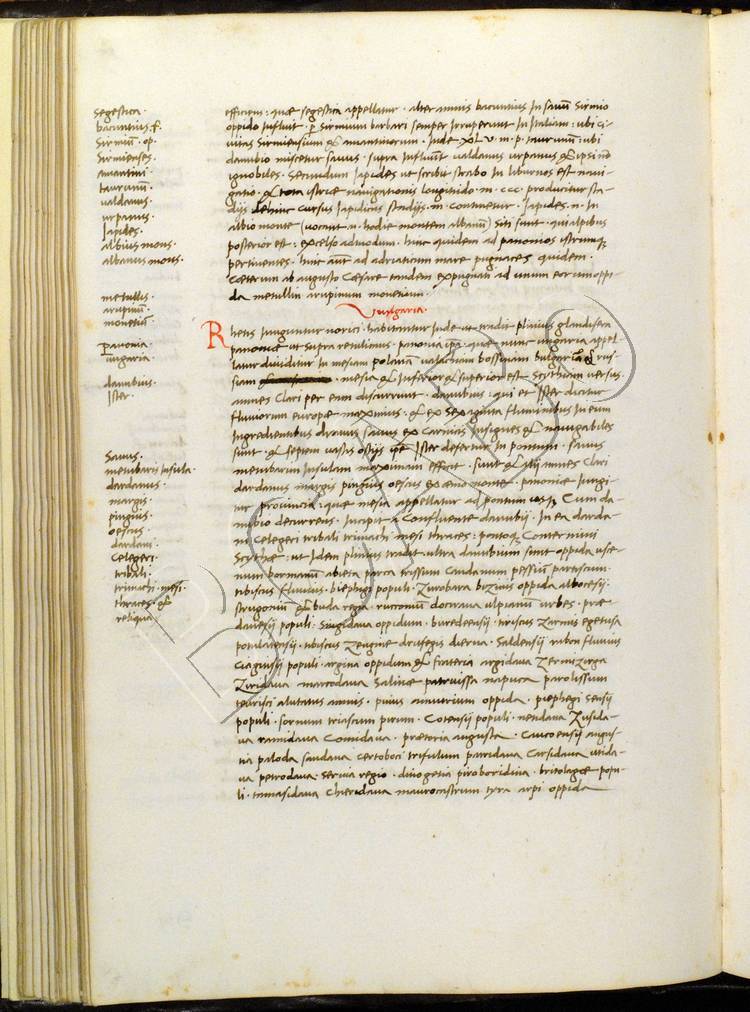 Segestica.
bacuntius.f.
Sirmiū. op.
Sirmienses.
amantini.
taurunū.
valdanus.
urpanus.
Japides.
albius mons.
albanus mons.
metullis.
arupinū.
monetiū.
panonia.
ungaria.
danubius.
Ister.
Savus.
metubaris insula.
dardanus.
margis.
pingius.
oescus.
dardani.
Celegeri.
tribali.
trimachi. mesi.
thraces. &
reliqua.
efficiens: quae segestica appellatur. alter amnis bacuntius In savū Sirmio
oppido Influit. p Sirmium barbari semper Irruperunt In Italiam: ubi ci-
vitas Sirmiensium & amantinorum. Inde .XLV. m. p. taurunū: ubi
danubio miscetur savus. supra Influūt valdanus urpanus & ipsi nō
ignobiles. Secundum Japides ut scribit strabo In liburnos est navi-
gatio. & tota istriae navigationis longitudo. m. ccc. producitur sta-
dijs dehinc cursus Japidicus stadijs. m. continetur. Japides. n. In
albio monte (vocant n. hodie montem albanū) siti sunt. qui alpibus
posterior est: excelso admodum. hinc quidem ad panonios istrumq
pertinentes. hinc aūt ad adriaticum mare pugnaces quidem.
Caeterum ab augusto Caesare tandem expugnati ad unum eorum oppi-
da metullin arupinum monetium.
Vulgaria.
Rhetis Junguntur norici. habitantur Inde ut tradit plinius glandifera
panoniae ut supra retulimus. panonia ipā: quae nunc ungaria appel-
latur dividitur In mesiam polanā valachiam bossinam bulgariā & rus-
siam. mesia & Inferior & superior est Scythiam versus.
amnes Clari per eam discurrunt. danubius: qui et Ister dicitur
fluviorum europae maximus. & ex sexaginta fluminibus In eum
Ingredientibus dravus savus ex Carnicis Insignes & navigabiles
sunt. & septem vastis ostijs ipē Ister defertur In pontum. savus
metubarim Insulam maximam efficit. sunt & alij amnes Clari
dardanus margis pingius oescus ex aemo monte. panoniae Jungi-
tur provincia: quae mesia appellatur ad pontum usq Cum da-
nubio decurrens. Incipit a Confluente danubij. In ea darda-
ni Celegeri tribali trimachi mesi thraces: pontoq Contermini
Scythae: ut Idem plinius tradit. ultra danubium sunt oppida usce-
num bormanū abieta parca trissum Candanum pessiū partiscum.
tibiscus fluvius. biephigi populi. Zurobara bizinis oppida albocesij.
strugonium & buda regia. ruconiū docirava ulpianū urbes. prae
davesij populi: Singidava oppidum. burediensij. tiriscus Zarmis egetusa
potulatensij. tibiscus Zeugine drusegis dierna. Saldensij rabon fluvius
Ciagisij populi. argina oppidum & frateria argidava Zermizirga
Ziridava marcodava Salinae patruissa napuca parolissum
teurisci alutatus amnis. pinus amutrium oppida. piephegi Sensij
populi. sornum triascum pirum. Cotensij populi. nendava Zusida-
va ramidava Comidava. praetoria augusta. Caucoensij angus-
tia paloda sandava certoboci trifulum patridava Carsidava utida-
va petrodava. servia regio. dinogetia piroboridina. britolagae popu-
li. tamasidava Chieridava maurocastrum tyra arpi oppida